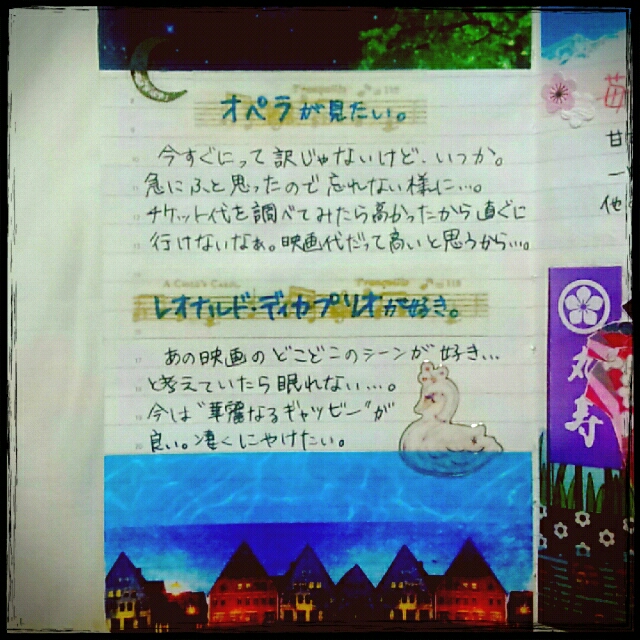 オペラが見たい。
今すぐにって訳じゃないけど、いつか。
急にふと思ったので忘れない様に…。
チケット代を調べてみたら高かったから直ぐに
行けないなぁ。映画代だって高いと思うから…。
レオナルド・ディカプリオが好き。
あの映画のどこどこのシーンが好き…
と考えていたら眠れない…。
今は“華麗なるギャツビー”が
良い。凄くにやけたい。
苺
甘
一
他
丸寿